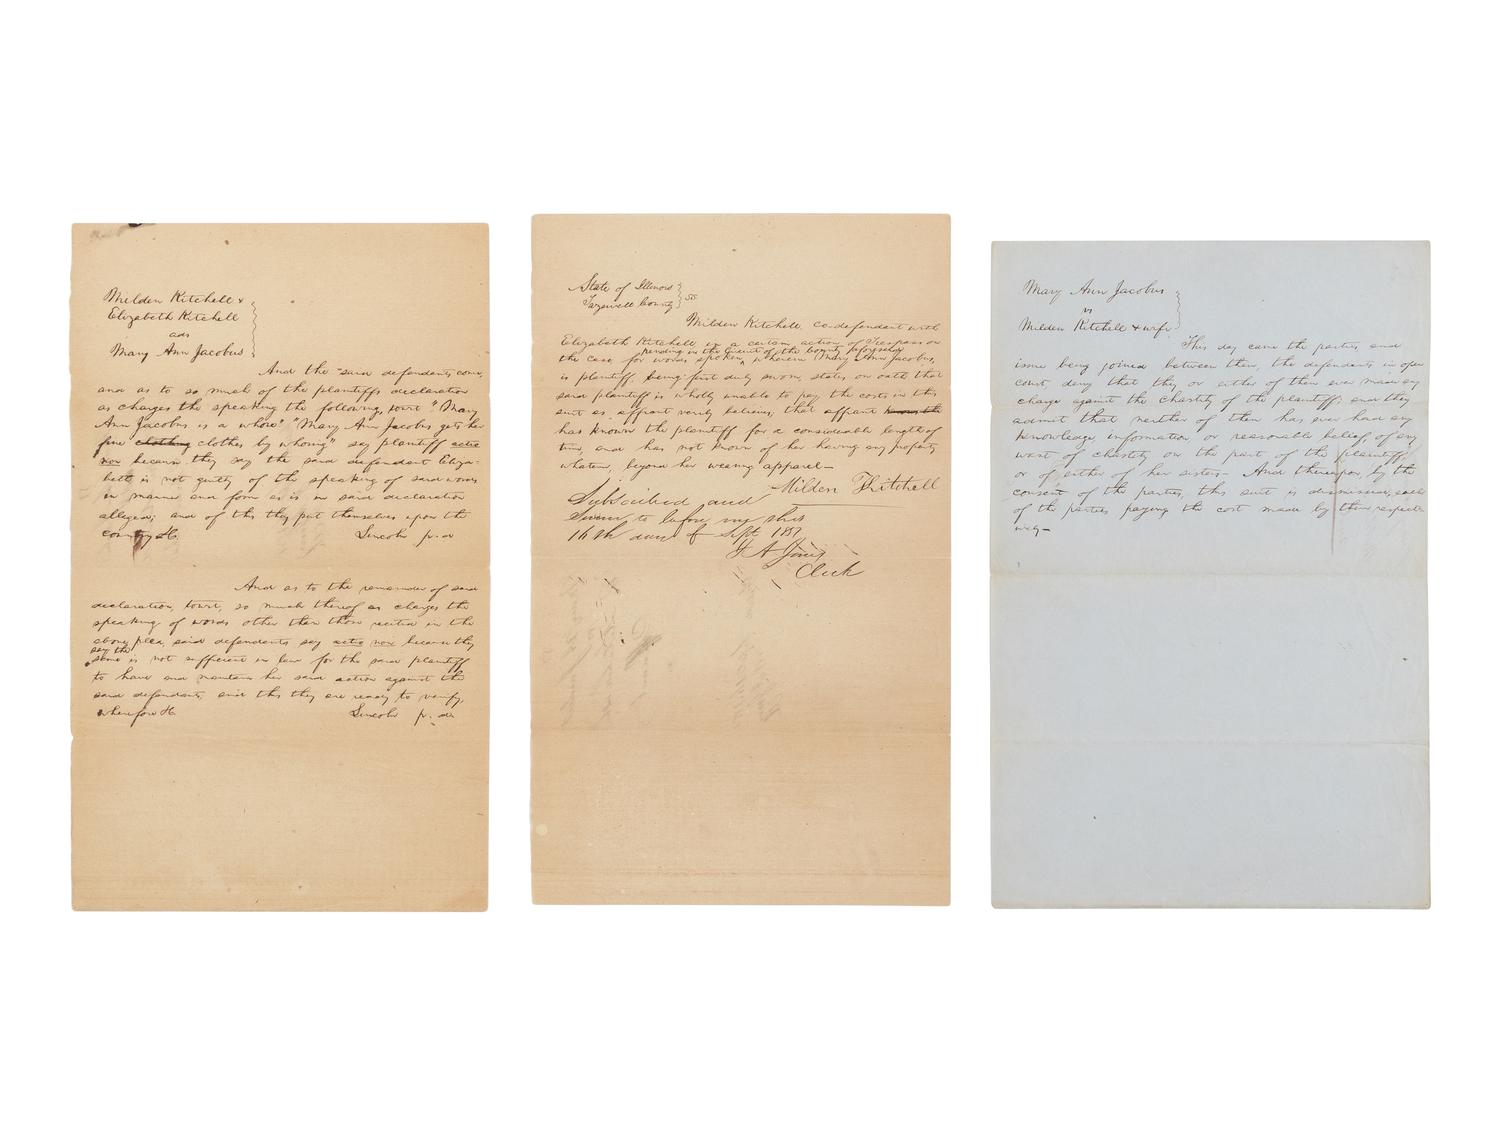 Milden Kitchell &
Elizabeth Kitchell
ads
Mary Ann Jacobus
And the said defendants come,
and as to so much of the plaintiffs declaration
as charges the speaking the following, towit "Mary
Ann Jacobus is a whore" "Mary Ann Jacobus gets her
fine clothing clothes by whoring" say plaintiff actio
non because they say the said defendant Eliza-
beth is not guilty of the speaking of said words
in manner and form as is in said declaration
alleged; and of this they put themselves upon the
country &c.
Lincoln p. d
And as to the remainder of said
declaration, towit, so much thereof as charges the
speaking of words other than those recited in the
above plea, said defendants say actio non because they
say the
same is not sufficient in law for the said plaintiff
to have and maintain her said action against the
said defendants, and this they are ready to verify,
wherefore &c.
Lincoln p. d
State of Illinois
Tazewell County } SS.
Milden Kitchell, co-defendant with
Elizabeth Kitchell in a certain action of Trespass on
pending in the Circuit of the County aforesaid
the case for words spoken, wherein Mary Ann Jacobus,
is plaintiff, being first duly sworn, states on oath that
said plaintiff is wholly unable to pay the costs in this
suit as affiant verily believes, that affiant knows th
has known the plaintiff for a considerable length of
time, and has not known of her having any property
whatever, beyond her wearing apparel—
Subscribed and
Milden Kitchell
Sworn to before me this
16th day of Sept 1857
J A Jones
Clerk
Mary Ann Jacobus
vs
Milden Kitchell & wife
This day came the parties, and
issue being joined between them, the defendants in open
court, deny that they, or either of them ever made any
charge against the chastity of the plaintiff; and they
admit that neither of them has ever had any
knowledge, information, or reasonable belief, of any
want of chastity on the part of the plaintiff,
or of either of her sisters— And thereupon, by the
consent of the parties, this suit is dismissed, each
of the parties paying the cost made by their respective
way—